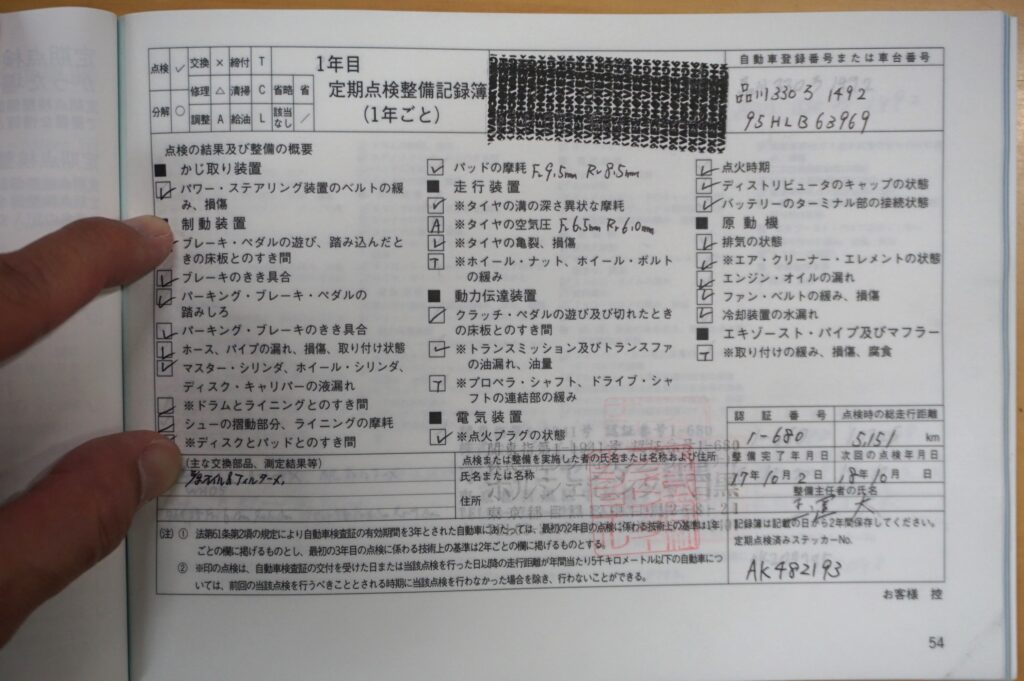 点検 ✓ 交換 × 締付 T
修理 △ 清掃 C 省略 省
分解 ○ 調整 A 給油 L 該当なし /
1年目
定期点検整備記録簿
(1年ごと)
自動車登録番号または車台番号
品川330 ろ 1492
95HLB63969
点検の結果及び整備の概要
■ かじ取り装置
パワー・ステアリング装置のベルトの緩
み、損傷
制動装置
ブレーキ・ペダルの遊び、踏み込んだと
きの床板とのすき間
ブレーキのきき具合
パーキング・ブレーキ・ペダルの
踏みしろ
パーキング・ブレーキのきき具合
ホース、パイプの漏れ、損傷、取り付け状態
マスター・シリンダ、ホイール・シリンダ、
ディスク・キャリパーの液漏れ
※ドラムとライニングとのすき間
シューの摺動部分、ライニングの摩耗
※ディスクとパッドとのすき間
パッドの摩耗 F.9.5mm R.8.5mm
■ 走行装置
※タイヤの溝の深さ異状な摩耗
A ※タイヤの空気圧
※タイヤの亀裂、損傷
T ※ホイール・ナット、ホイール・ボルト
の緩み
■ 動力伝達装置
クラッチ・ペダルの遊び及び切れたとき
の床板とのすき間
※トランスミッション及びトランスファ
の油漏れ、油量
T ※プロペラ・シャフト、ドライブ・シャ
フトの連結部の緩み
■ 電気装置
※点火プラグの状態
点火時期
ディストリビュータのキャップの状態
バッテリーのターミナル部の接続状態
■ 原動機
排気の状態
※エア・クリーナー・エレメントの状態
エンジン・オイルの漏れ
ファン・ベルトの緩み、損傷
冷却装置の水漏れ
■ エキゾースト・パイプ及びマフラー
T ※取り付けの緩み、損傷、腐食
認証番号 点検時の総走行距離
1-680 5,151 km
整備完了年月日 次回の点検年月日
17年10月2日 18年10月 日
整備主任者の氏名
(主な交換部品、測定結果等)
点検または整備を実施した者の氏名または名称および住所
氏名または名称
住所
記録簿は記載の日から2年間保存してください。
定期点検済みステッカーNo.
AK482193
(注) ① 法第61条第2項の規定により自動車検査証の有効期間を3年とされた自動車にあたっては、最初の2年目の点検に係わる技術上の基準は1年
ごとの欄に掲げるものとし、最初の3年目の点検に係わる技術上の基準は2年ごとの欄に掲げるものとする。
② ※印の点検は、自動車検査証の交付を受けた日または当該点検を行った日以降の走行距離が年間当り5千キロメートル以下の自動車につ
いては、前回の当該点検を行うべきこととされる時期に当該点検を行わなかった場合を除き、行わないことができる。
お客様 控
54